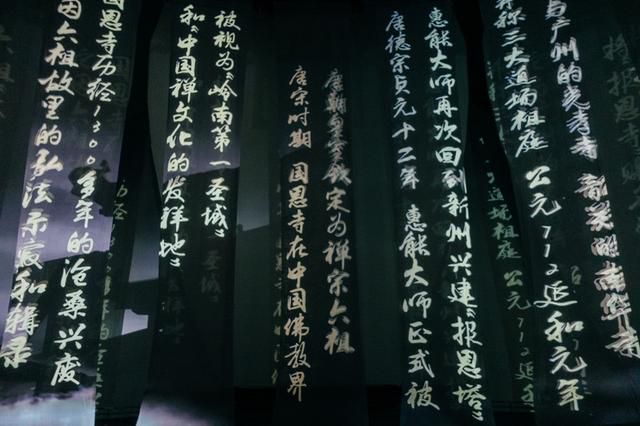 与广州的光孝寺 韶关的南华寺
并称三大道场祖庭 公元712延和元年
惠能大师再次回到新州兴建“报恩塔”
唐德宗贞元十二年 惠能大师正式被
唐朝皇室钦定为禅宗六祖
唐宋时期 国恩寺在中国佛教界
被视为“岭南第一圣城”
和“中国禅文化的发祥地”
国恩寺历经1300余年的沧桑兴废
因六祖故里的弘法示寂和辑录